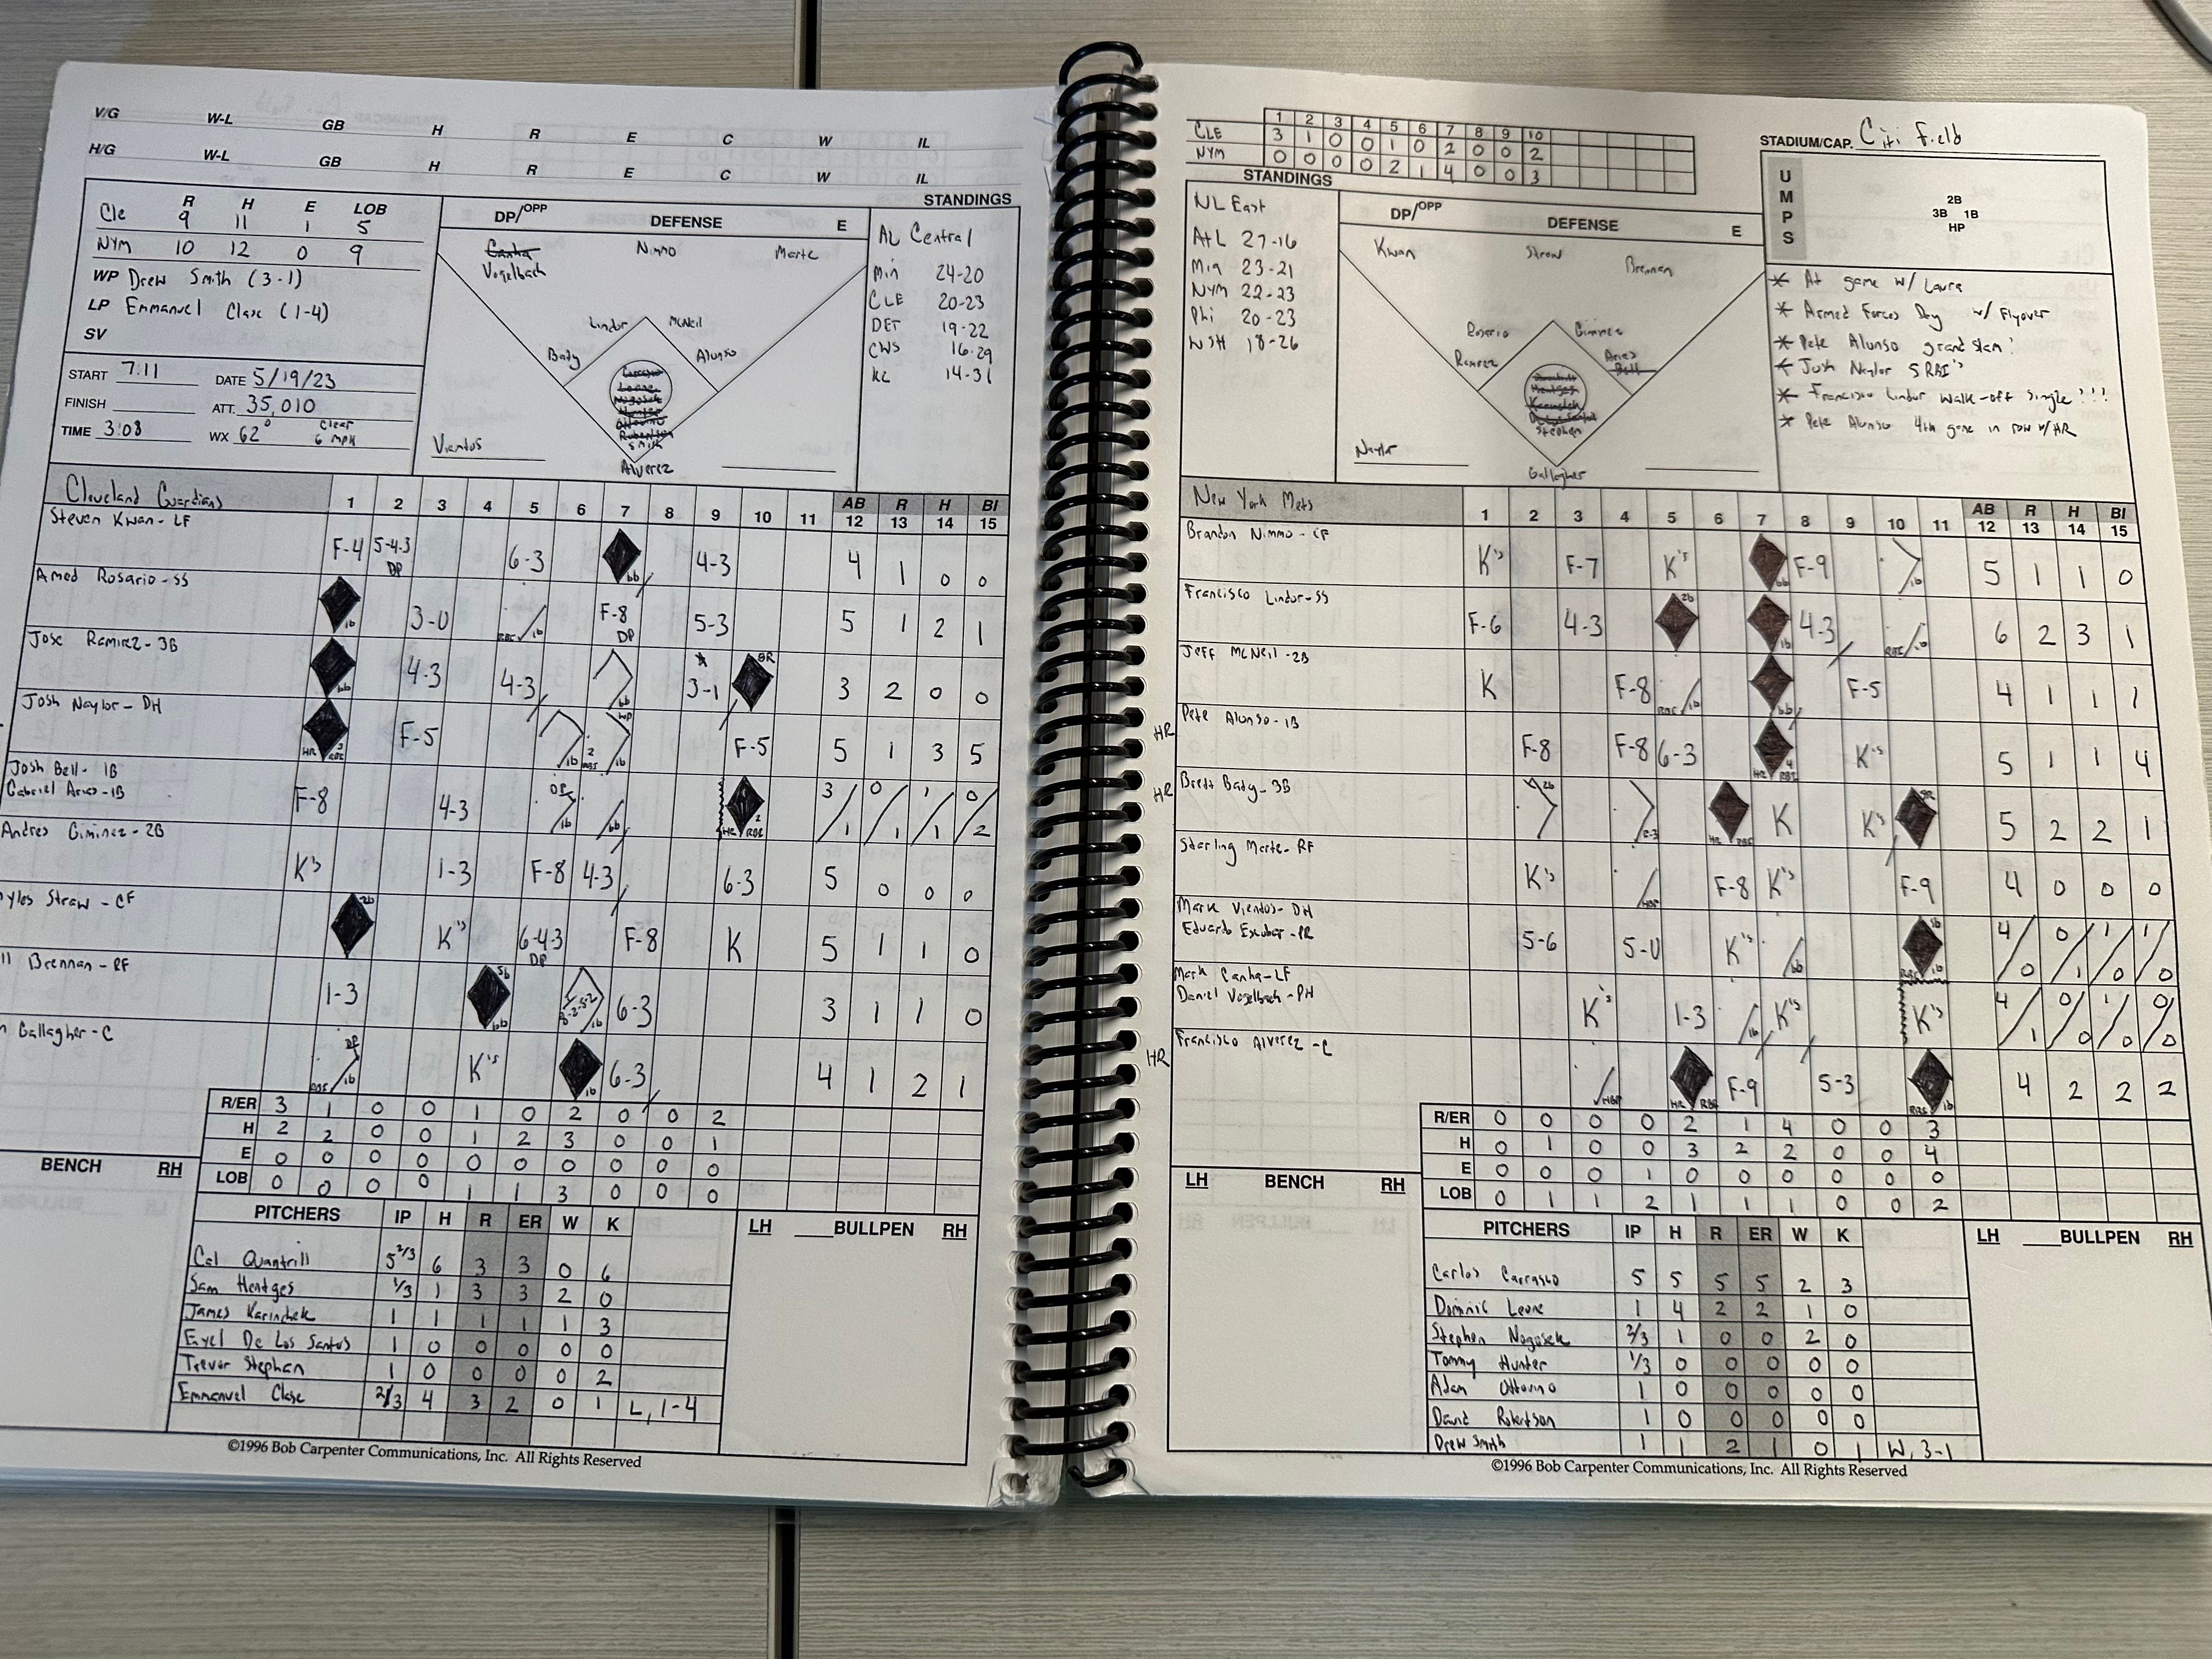 V/G W-L GB H R E C W IL
H/G W-L GB H R E C W IL
STANDINGS
R H E LOB
Cle 9 11 1 5
NYM 10 12 0 9
WP Drew Smith (3-1)
LP Emmanuel Clase (1-4)
SV
START 7:11 DATE 5/19/23
FINISH ATT. 35,010
TIME 3:08 WX 62° Clear 6 mph
DP/OPP DEFENSE E
Canha Nimmo Marte
Vogelbach
Lindor McNeil
Baty Alonso
Carrasco
Leone
Nogosek
Hunter
Ottavino
Robertson
Smith
Vientos
Alverez
AL Central
Min 24-20
CLE 20-23
DET 19-22
CWS 16-29
KC 14-31
Cleveland Guardians 1 2 3 4 5 6 7 8 9 10 11 AB R H BI
12 13 14 15
Steven Kwan - LF
F-4 5-4-3 DP 6-3 bb 4-3 4 1 0 0
Amed Rosario - SS
1b 3-U RBI 1b F-8 DP 5-3 5 1 2 1
Jose Ramirez - 3B
bb 4-3 4-3 bb 3-1 3 2 0 0
Josh Naylor - DH
HR 3 RBI F-5 1b WP 2 RBI 1b F-5 5 1 3 5
Josh Bell - 1B
Gabriel Arias - 1B
F-8 4-3 1b bb HR 2 RBI 3/1 0/1 1/1 0/2
Andres Giminez - 2B
K's 1-3 F-8 4-3 6-3 5 0 0 0
yles Straw - CF
2b K's 6-4-3 DP F-8 K 5 1 1 0
ll Brennan - RF
1-3 bb 1b 6-3 3 1 1 0
n Gallagher - C
RBI 1b K's 1b 6-3 4 1 2 1
R/ER 3 1 0 0 1 0 2 0 0 2
H 2 2 0 0 1 2 3 0 0 1
E 0 0 0 0 0 0 0 0 0 0
LOB 0 0 0 0 1 1 3 0 0 0
BENCH RH
PITCHERS IP H R ER W K
Cal Quantrill 5 2/3 6 3 3 0 6
Sam Hentges 1/3 1 3 3 2 0
James Karinchek 1 1 1 1 1 3
Enyel De Los Santos 1 0 0 0 0 0
Trevor Stephan 1 0 0 0 0 2
Emmanuel Clase 2/3 4 3 2 0 1 L, 1-4
LH BULLPEN RH
©1996 Bob Carpenter Communications, Inc. All Rights Reserved
1 2 3 4 5 6 7 8 9 10
CLE 3 1 0 0 1 0 2 0 0 2
NYM 0 0 0 0 2 1 4 0 0 3
STANDINGS
STADIUM/CAP. Citi Field
NL East
Atl 27-16
Mia 23-21
NYM 22-23
Phi 20-23
WSH 18-26
DP/OPP DEFENSE E
Kwan Straw Brennan
Rosario Gimnez
Ramirez Arias
Bell
Hentges
Karinchek
Stephen
Naylor
Gallagher
UMPS
2B
3B 1B
HP
* At game w/ Laura
* Armed Forces Day w/ Flyover
* Pete Alonso grand slam!
* Josh Naylor 5 RBI's
* Francisco Lindor Walk-off single!!!
* Pete Alonso 4th game in row w/HR
New York Mets 1 2 3 4 5 6 7 8 9 10 11 AB R H BI
12 13 14 15
Brandon Nimmo - CF
K's F-7 K's bb F-9 1b 5 1 1 0
Francisco Lindor - SS
F-6 4-3 2b 1b 4-3 RBI 1b 6 2 3 1
Jeff McNeil - 2B
K F-8 RBI 1b bb F-5 4 1 1 1
HR Pete Alonso - 1B
F-8 F-8 6-3 HR 4 RBI K's 5 1 1 4
HR Brett Baty - 3B
2b E-3 HR RBI K K's 5 2 2 1
Starling Marte - RF
K's HBP F-8 K's F-9 4 0 0 0
Mark Vientos - DH
Eduardo Escobar - PR
5-6 5-U K's bb RBI 1b 4/0 0/1 1/0 1/0
Mark Canha - LF
Daniel Vogelbach - PH
K's 1-3 1b K's K's 4/1 0/0 1/0 0/0
HR Francisco Alverez - C
HBP HR RBI F-9 5-3 RBI 1b 4 2 2 2
R/ER 0 0 0 0 2 1 4 0 0 3
H 0 1 0 0 3 2 2 0 0 4
E 0 0 0 1 0 0 0 0 0 0
LOB 0 1 1 2 1 1 1 0 0 2
LH BENCH RH
PITCHERS IP H R ER W K
Carlos Carrasco 5 5 5 5 2 3
Dominic Leone 1 4 2 2 1 0
Stephen Nogosek 2/3 1 0 0 2 0
Tommy Hunter 1/3 0 0 0 0 0
Adam Ottavino 1 0 0 0 0 0
David Robertson 1 0 0 0 0 0
Drew Smith 1 1 2 1 0 1 W, 3-1
LH BULLPEN RH
©1996 Bob Carpenter Communications, Inc. All Rights Reserved